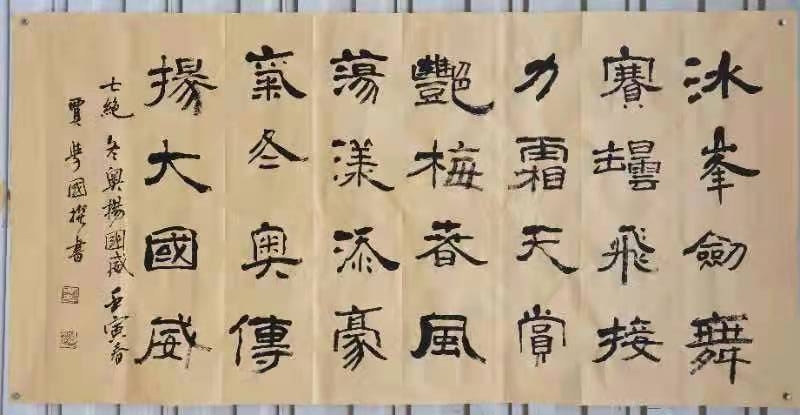 冰峯劍舞
賽罎飛接
力霜天賞
艷梅春風
蕩漾添豪
氣冬奧傳
揚大國威
七絕 冬奧揚國威 壬寅春
賈學國撰書